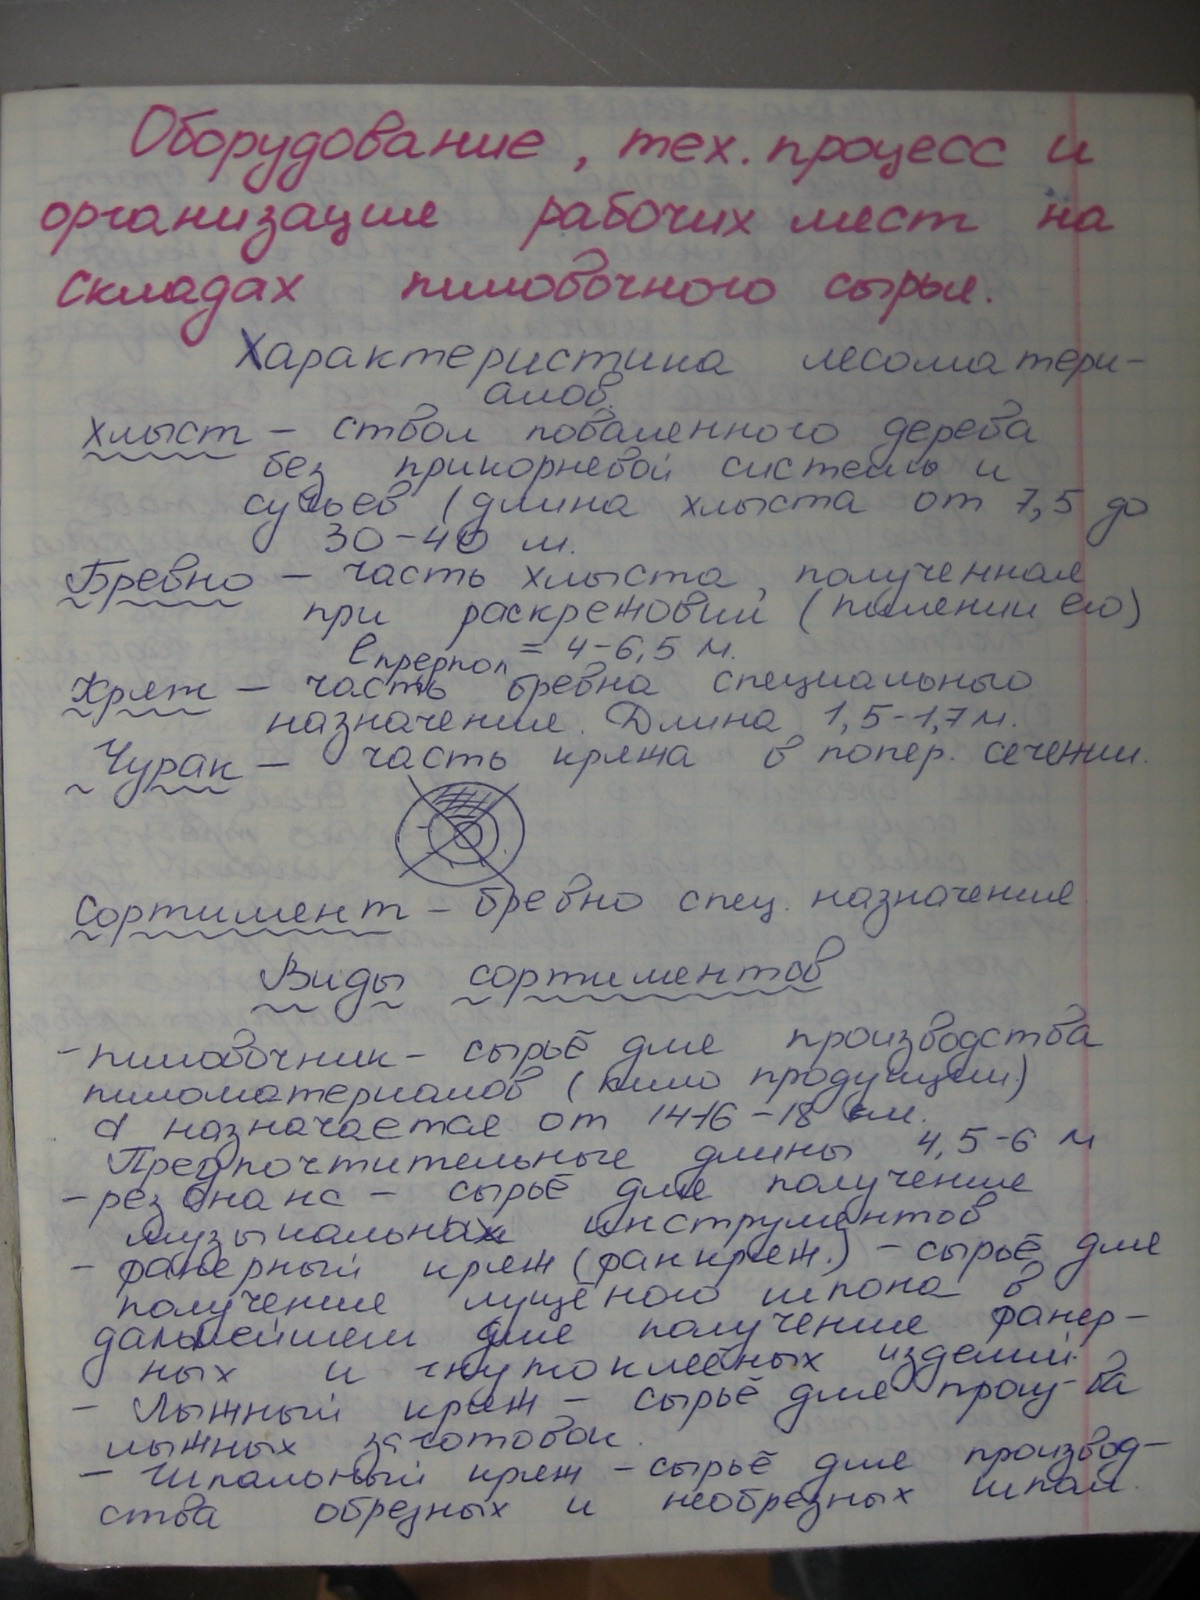 Оборудование, тех. процесс и
организация рабочих мест на
складах пиловочного сырья.
Характеристика лесоматери-
алов.
Хлыст – ствол поваленного дерева
без прикорневой системы и
сучьев (длина хлыста от 7,5 до
30-40 м.
Бревно – часть хлыста, полученная
при раскряжовки (пилении его)
= 4-6,5 м.
Кряж – часть бревна специального
назначения. Длина 1,5-1,7 м.
Чурак – часть кряжа в попер. сечении.
Сортимент – бревно спец. назначения
Виды сортиментов
- пиловочник – сырьё для производства
пиломатериалов (пило продукции)
d назначается от 14-16-18 см.
Предпочтительные длины 4,5-6 м
- резонанс – сырьё для получения
музыкальных инструментов
- фанерный кряж (фанкряж.) – сырьё для
получения лущёного шпона в
дальнейшем для получения фанер-
ных и гнутоклеёных изделий.
- Лыжный кряж – сырьё для произ-ва
лыжных заготовок.
- Шпальный кряж – сырьё для производ-
ства обрезных и необрезных шпал.